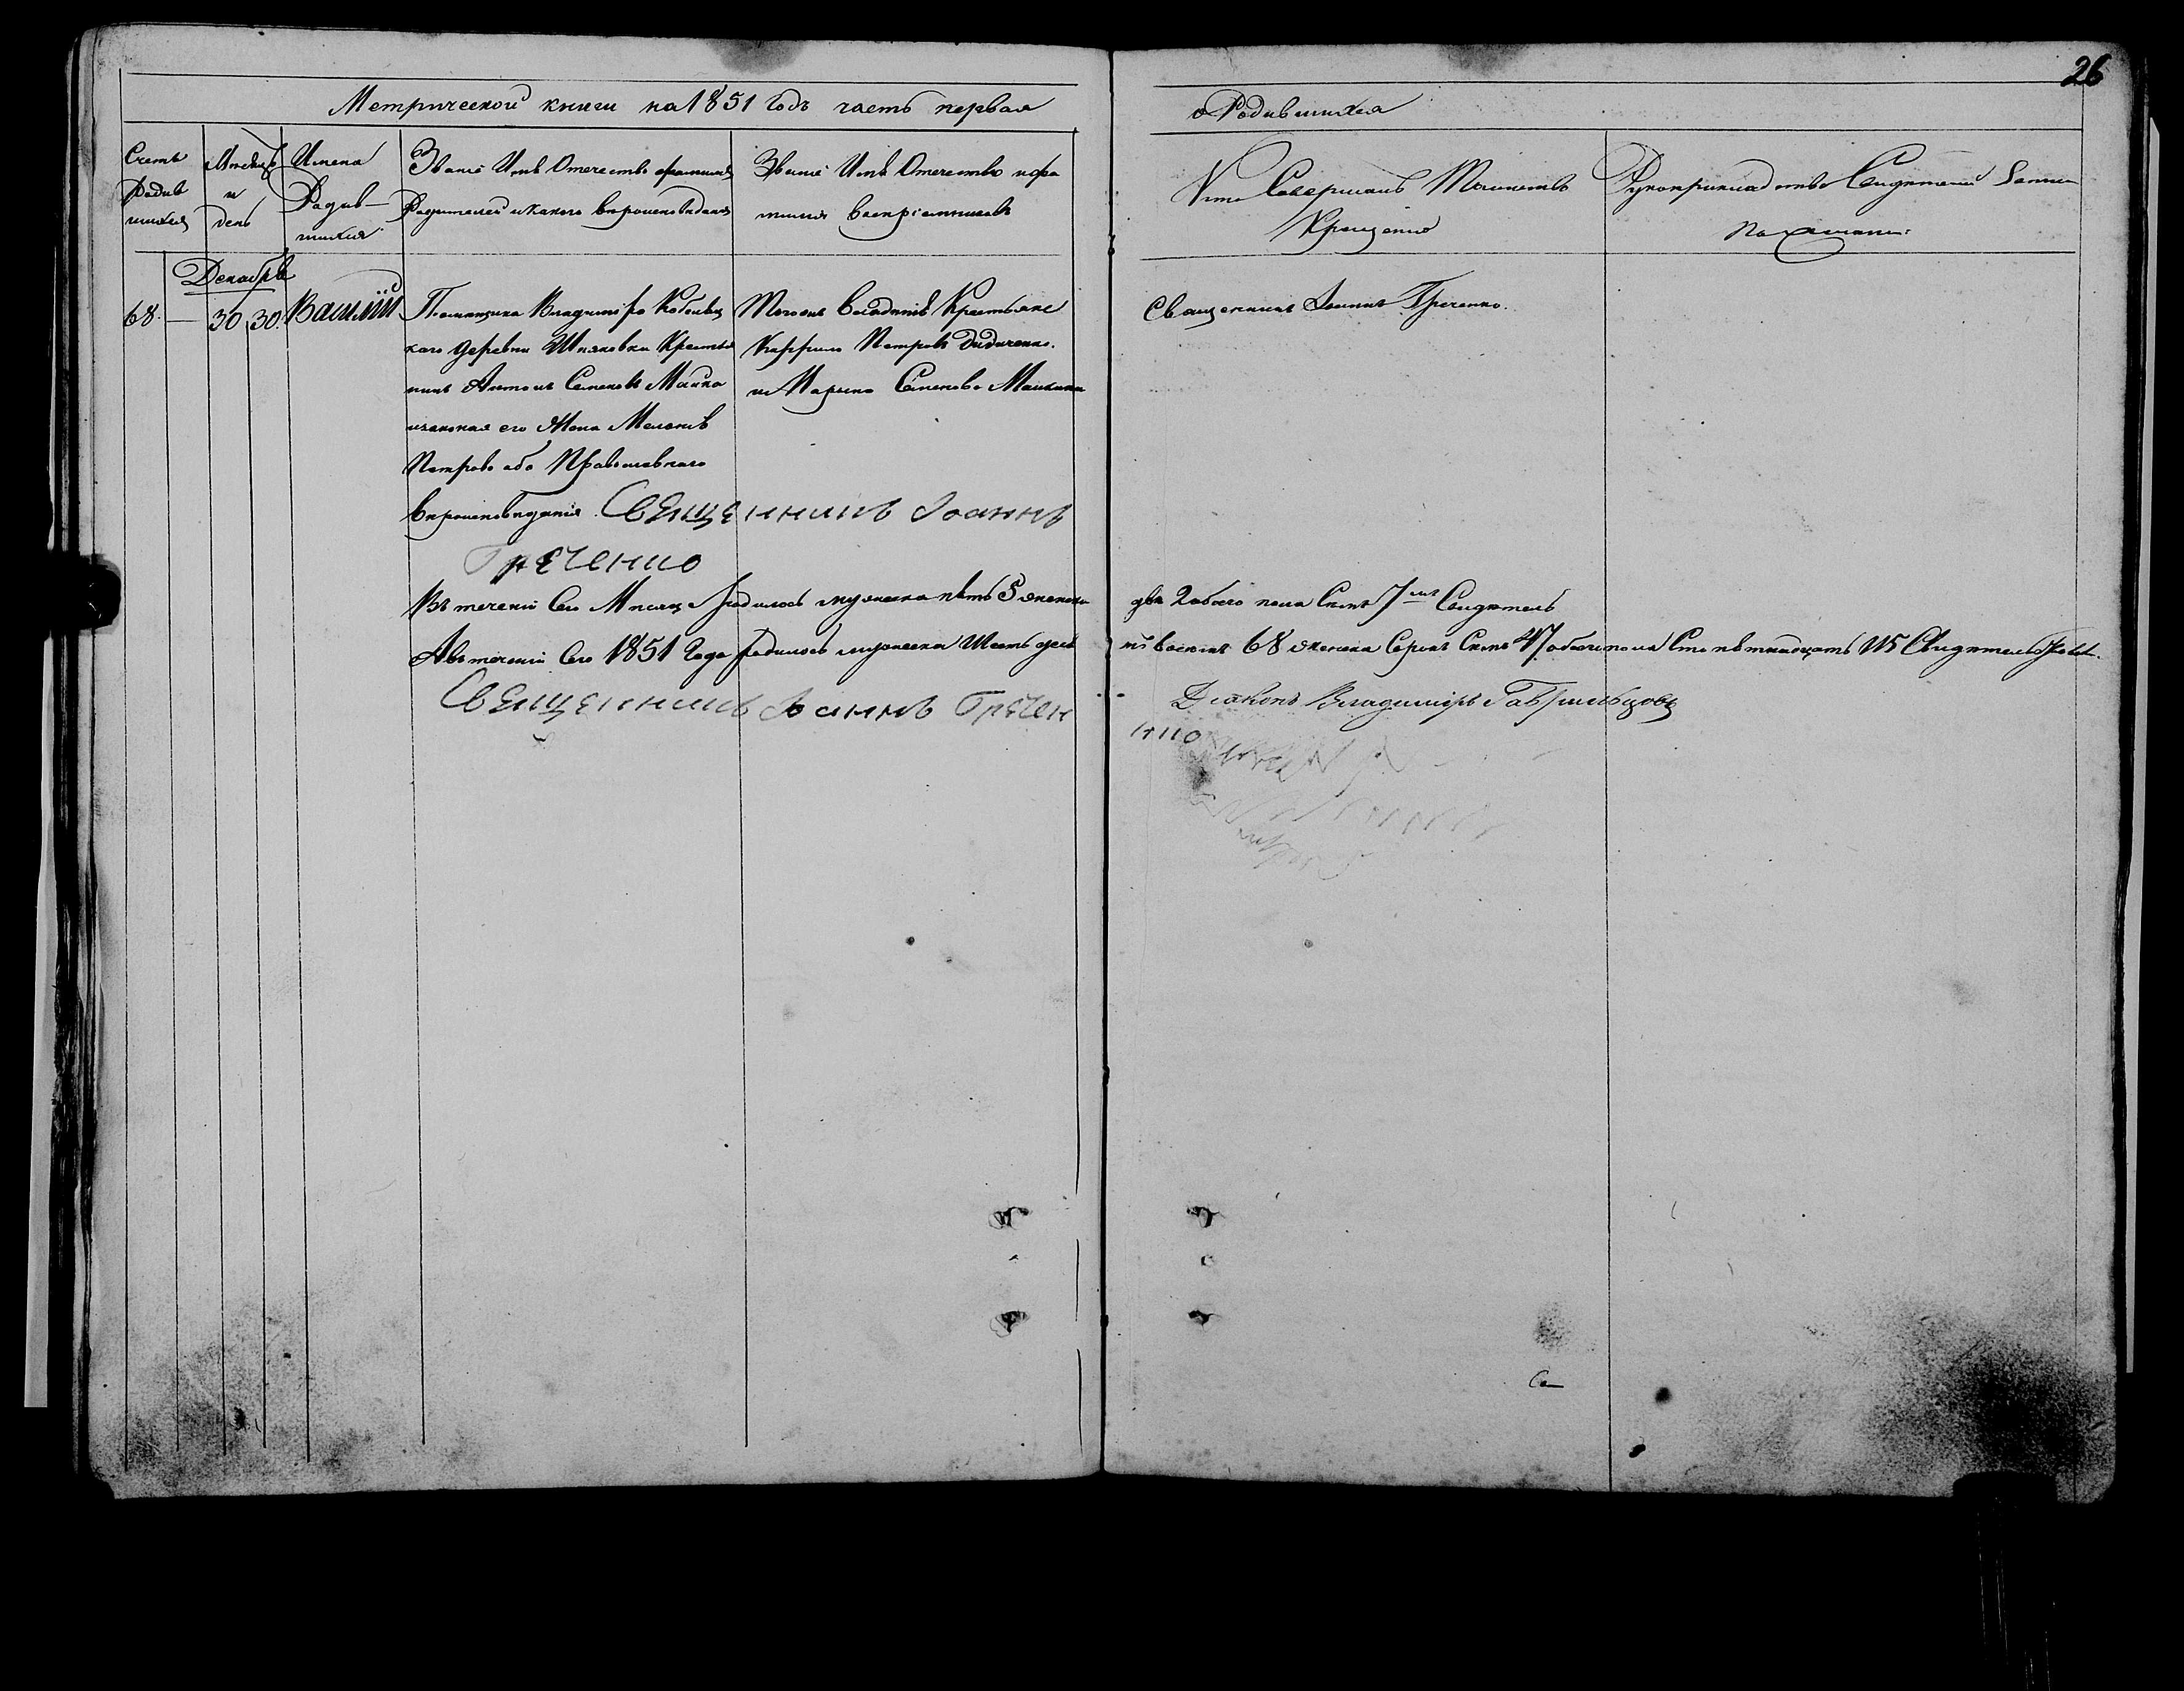 26
Метрической книги на 1851 Годъ часть первая
о Родившихся
Счетъ Родившихся
Мѣсяцъ и день
Имена Родившихся
Званіе Имя Отечество фамилія Родителей и какого вѣроисповѣданія
Званіе Имя Отечество и фамилія воспріемниковъ
Кто Совершалъ Таинство Крещенія
Рукоприкладство Свидетелей
Декабрь
68. — 30 30. Василій
Помещика Владиміра
каго деревни Крестья
нинъ Антонъ Семеновъ Майко
изаконая его Жена Меланія
Петрова оба Православнаго
вероисповеданія. Священникъ Іоаннъ
Греченко
Тогоже Владенія Крестьяне
Петровъ Дидиченко.
и Марына Семенова
Священникъ Іоаннъ Греченко.
Въ теченіи Сего Месяца родилось мужеска пять 5 женска
две 2 обоего пола Семь 7мь Свидетель
А въ теченіи Сего 1851 Года родилось мужеска Шесть деся
тъ восемь 68 женска Сорокъ Семь 47 обоего пола Сто пятнадцать 115 Свидетельствов.
Священникъ Іоаннъ Гречен
ко
Діаконъ Владимиръ